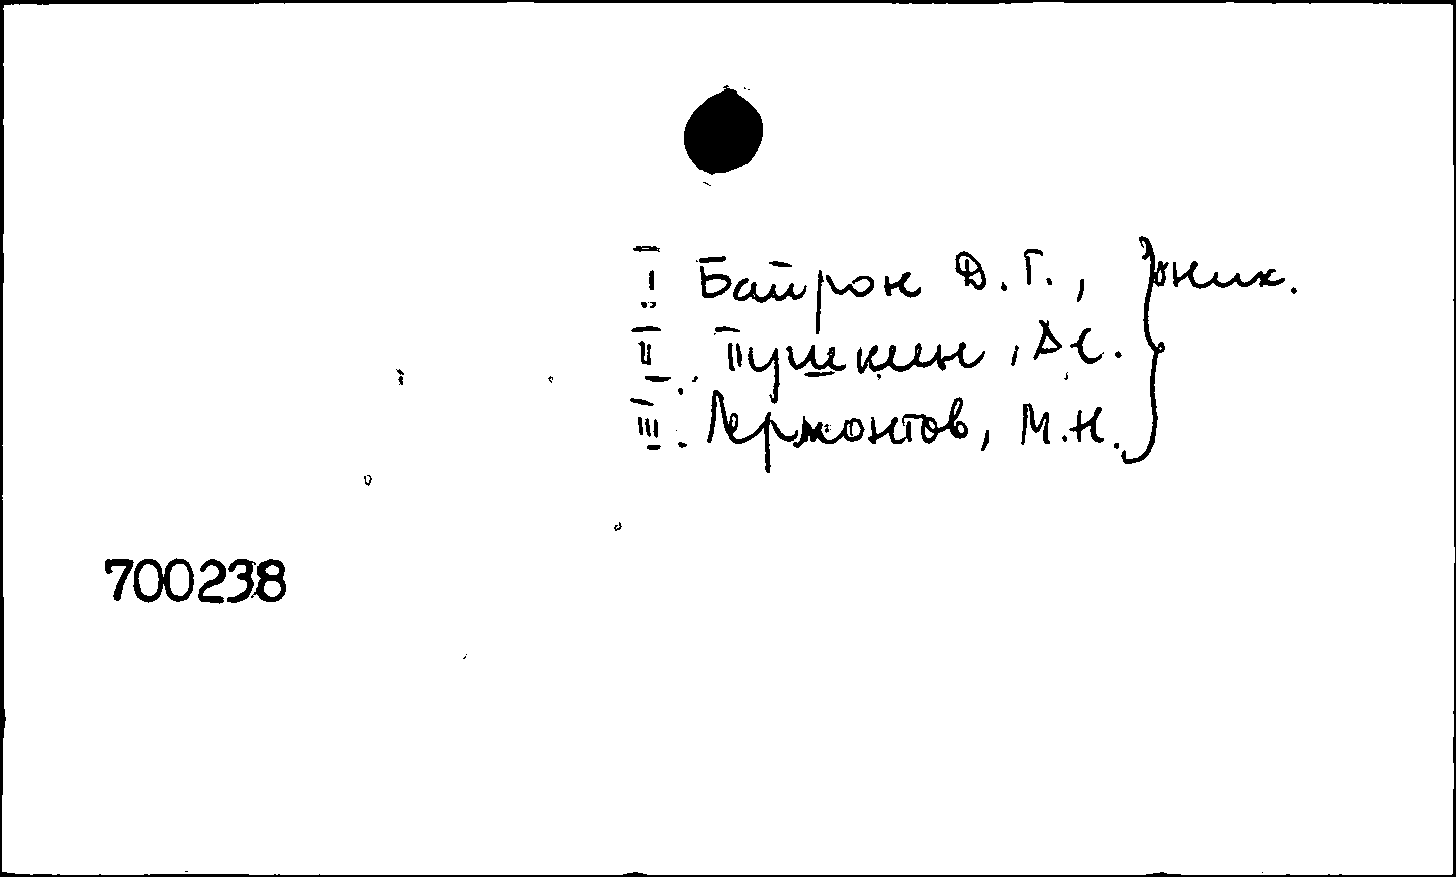 I Байрон Д.Г.,
II. Пушкин, А.С.
III. Лермонтов, М.Н.
700238